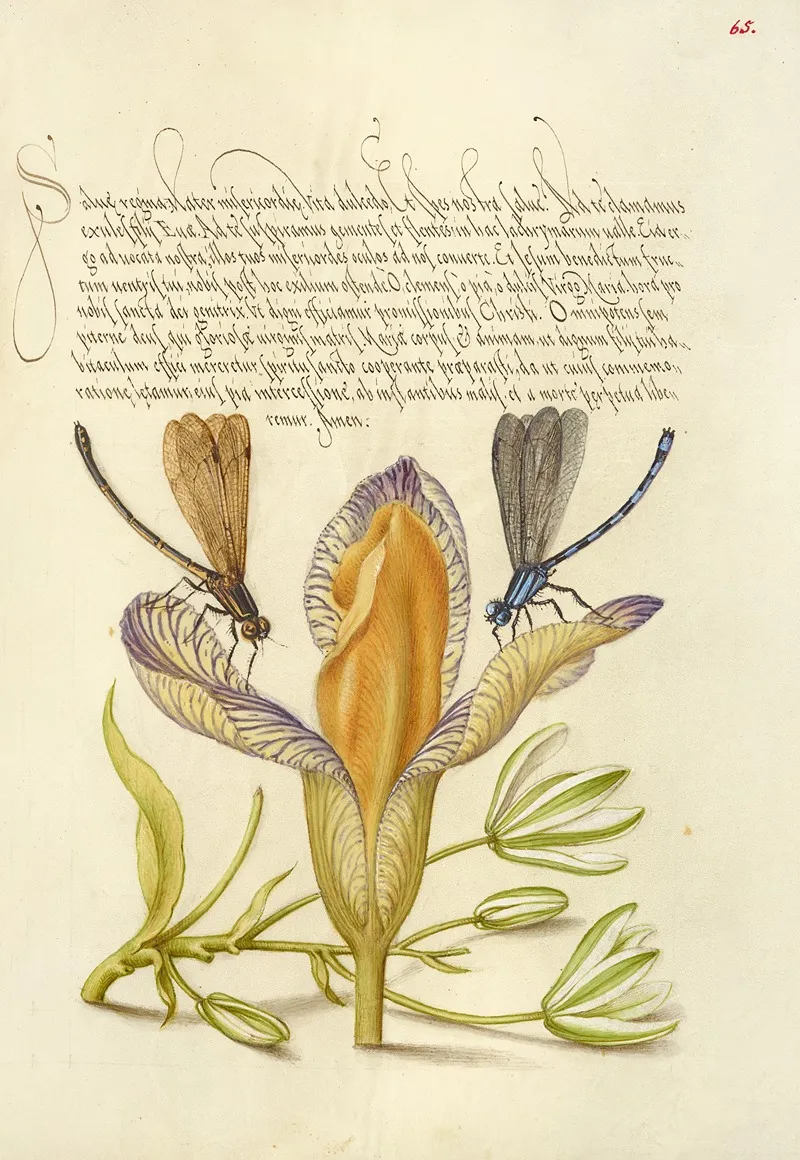 65.
Salue, regina, Mater misericordie, Vita dulcedo, Et spes nostra salue. Ad te clamamus
exules, filij Euæ. Ad te suspiramus gementes et flentes in hac lachrymarum ualle. Eia er-
go aduocata nostra, illos tuos misericordes oculos ad nos conuerte. Et Iesum benedictum fruc-
tum uentris tui, nobis post hoc exilium ostende. O clemens, o pia, o dulcis Virgo Maria, hora pro
nobis sancta dei genitrix, Vt digni efficiamur promissionibus Christi. Omnipotens sem
piterne deus, qui gloriosæ uirginis matris Mariæ corpus & animam ut dignum filij tui ha-
bitaculum effici mereretur, spiritu sancto cooperante præparasti, da ut cuius commemo-
ratione letamur, eius pia intercessione, ab instantibus malis, et a morte perpetua libe-
remur. Amen.